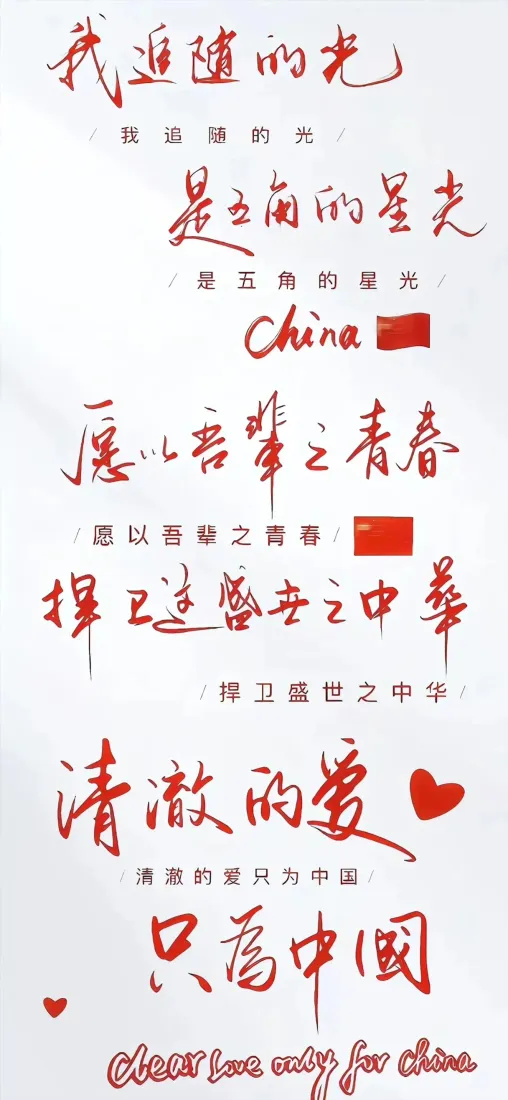 我追随的光
/ 我追随的光 /
是五角的星光
/ 是五角的星光 /
China
愿以吾辈之青春
/ 愿以吾辈之青春 /
捍卫这盛世之中華
/ 捍卫盛世之中华 /
清澈的爱
/ 清澈的爱只为中国 /
只為中國
Clear love only for China